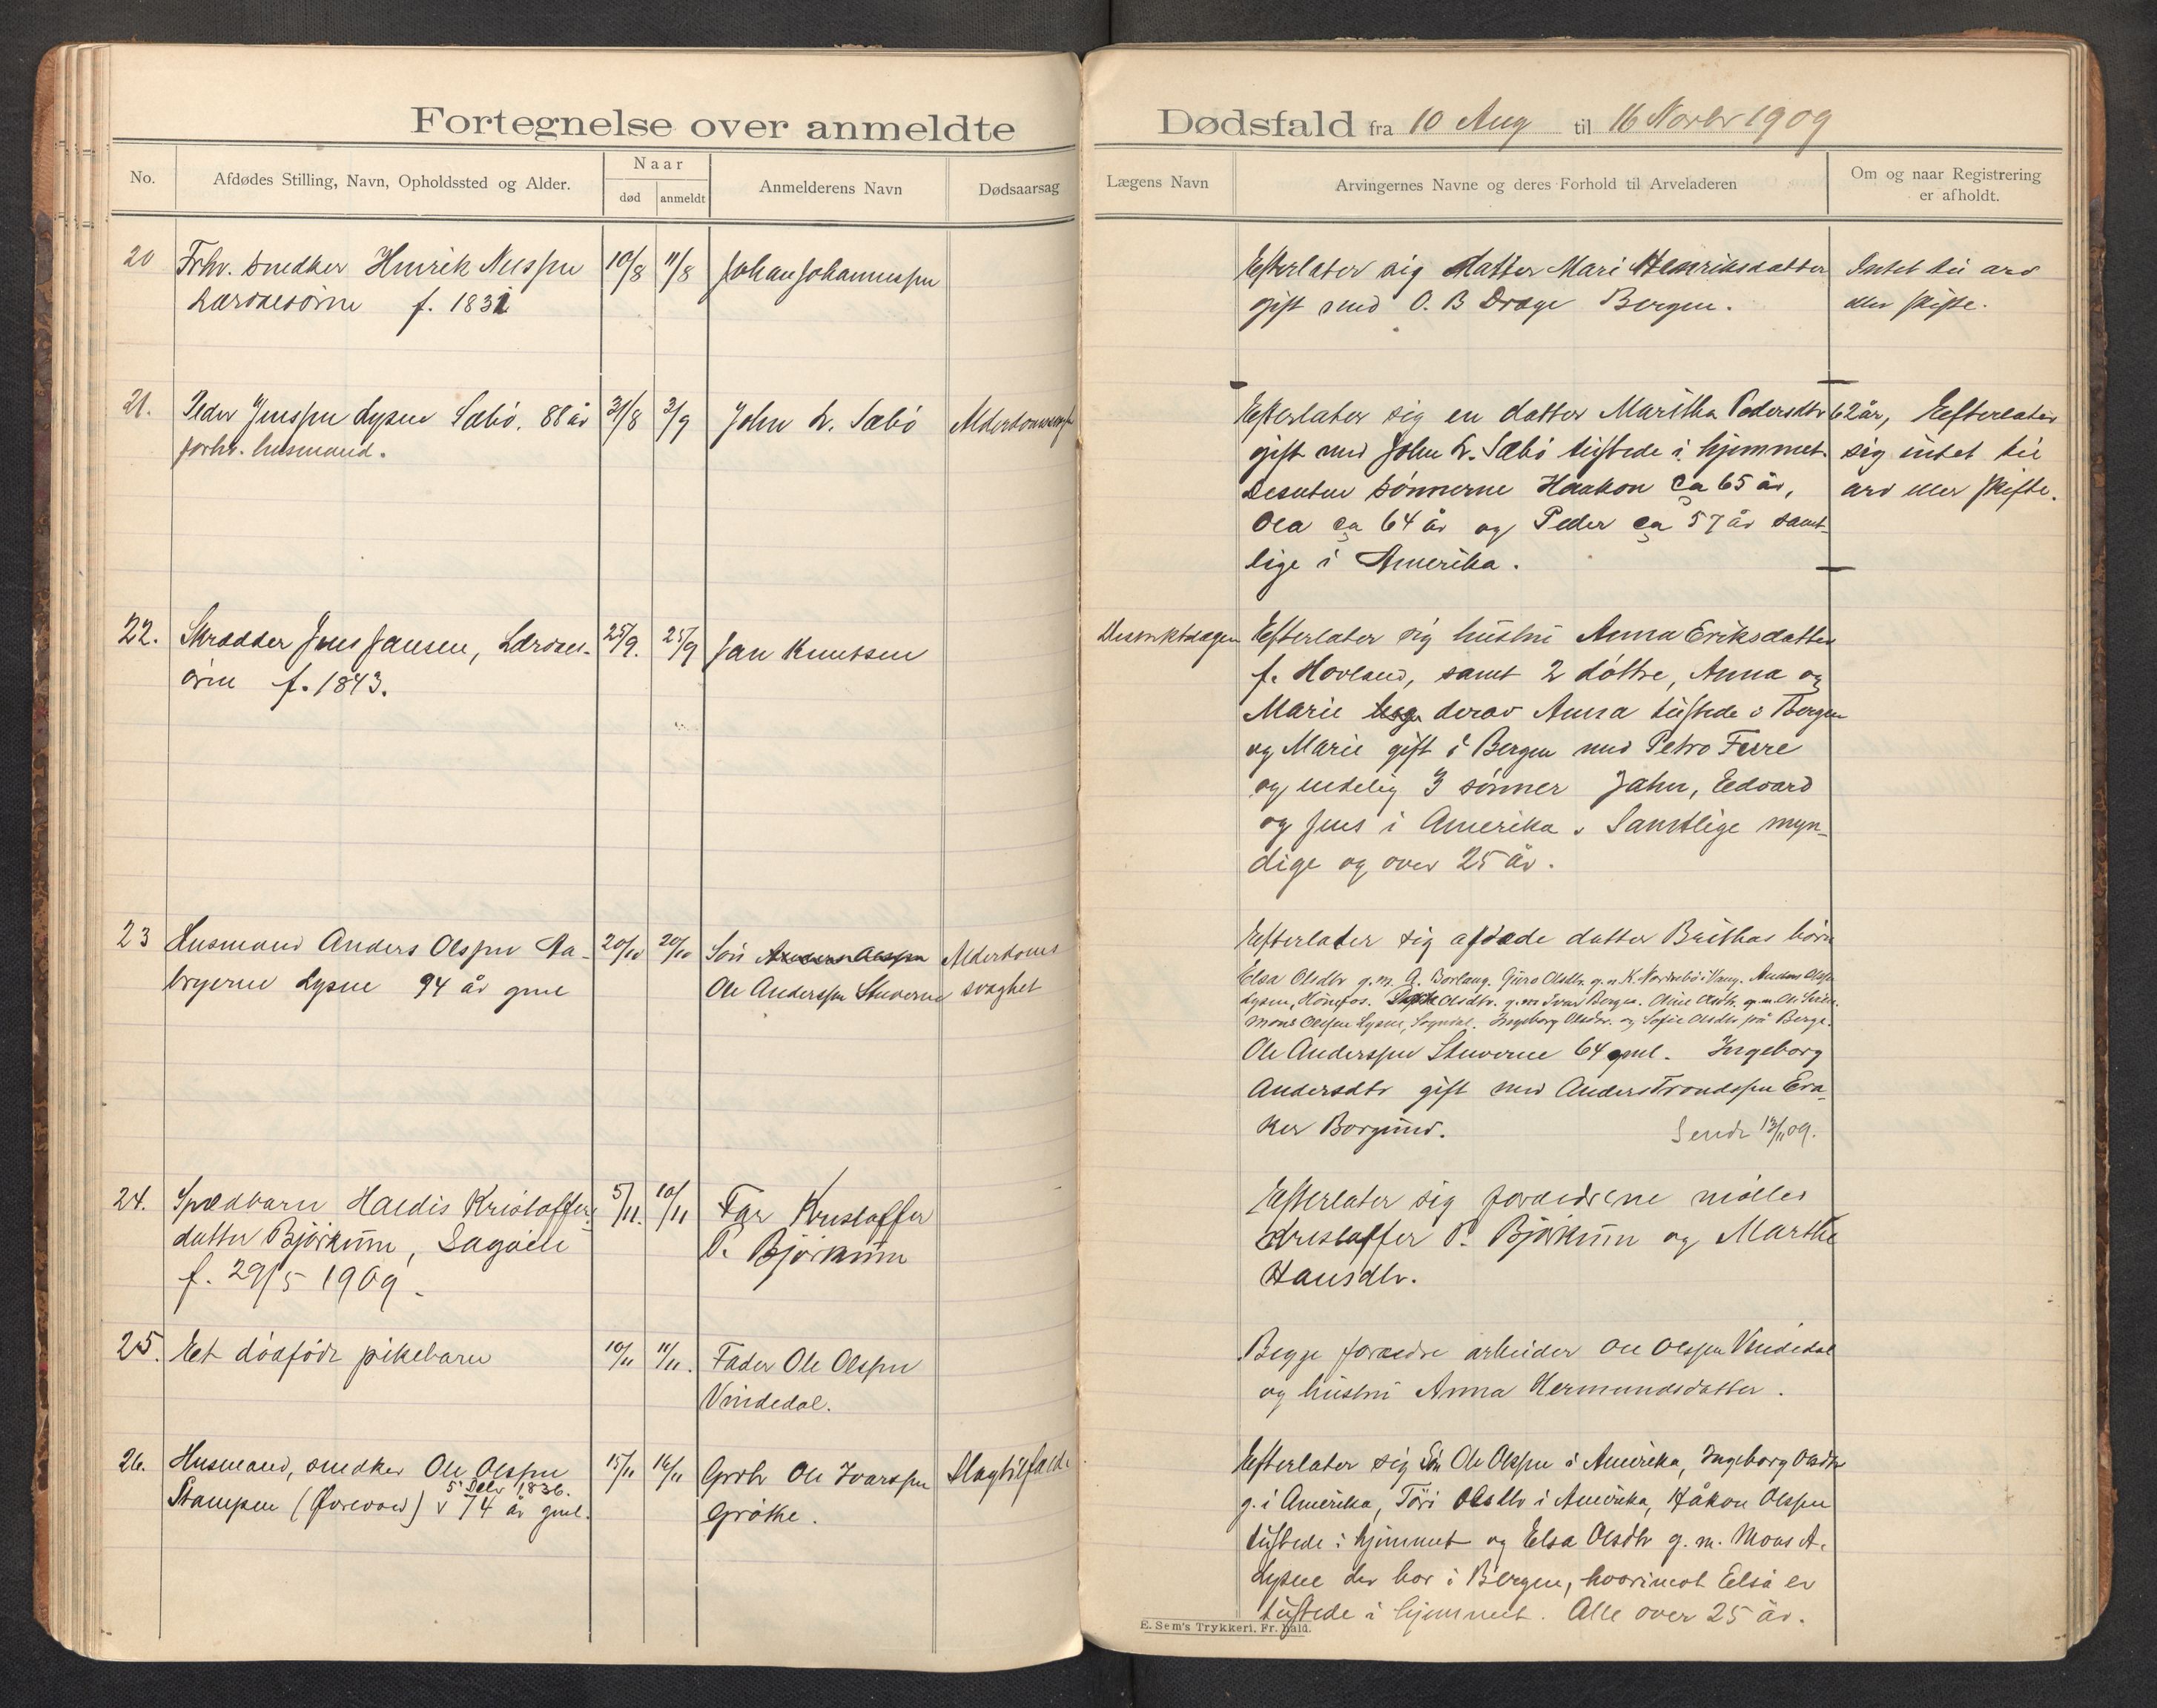 Fortegnelse over anmeldte
Dødsfald fra 10 Aug til 16 Novbr 1909
No.
Afdødes Stilling, Navn, Opholdssted og Alder.
Naar
død
anmeldt
Anmelderens Navn
Dødsaarsag
Lægens Navn
Arvingernes Navne og deres Forhold til Arveladeren
Om og naar Registrering
er afholdt.
20
Frhv. snedker Henrik Nilssen
Lærdalsøren f. 1831
10/8
11/8
Johan Johannessen
Efterlater sig datter Mari Henriksdatter
gift med O. B Drage Bergen.
Intet til arv
eller skifte.
21.
Peder Jenssen Lysne Sæbö. 88 år
forhv. husmand.
31/8
3/9
John L. Sæbö
Efterlater sig en datter Maritha Pedersdtr 62 år,
gift med John L. Sæbö tilstede i hjemmet.
Desuten sønnerne Haakon ca 65 år,
Ola ca 64 år og Peder ca 57 år samt-
lige i Amerika.
Efterlater
sig intet til
arv eller skifte.
22.
Skrædder Jens Jansen, Lærdals-
ören f. 1843.
25/9.
25/9
Jan Knutsen
Distriktslægen
Efterlater sig hustru Anna Eriksdatter
f. Hovland, samt 2 döttre, Anna og
Marie derav Anna tilstede i Bergen
og Marie gift i Bergen med Petro Ferre
og endelig 3 sönner Jahn, Edvard
og Jens i Amerika. Samtlige myn-
dige og over 25 år.
23
Husmand Anders Olssen Aa-
bryerne Lysne 94 år gml
20/10
20/10
Sön
Ole Anderssen Stuverne
Alderdoms
svaghet
Efterlater sig afdøde datter Brithas börn
Elsa Olsdtr g.m. A. Borlaug. Guro Olsdtr. g.m K. i Vang. Anders Olssen
Lysne, Hönefos. Olsdtr. g.m Ivar Bergen. Oline Olsdtr. g.m. Ole
Mons Olssen Lysne, Sogndal. Ingeborg Olsdtr. og Sofie Olsdtr på Berge.
Ole Anderssen Stuverne 64 gml. Ingeborg
Andersdtr gift med Anders Trondssen Era-
ker Borgund.
Sendt 13/11 09.
24.
Spædbarn Haldis Kristoffers-
datter Björkum,
f. 29/5 1909.
5/11.
10/11
Far Kristoffer
P. Björkum
Efterlater sig forældrene möller
Kristoffer P. Björkum og Marthe
Hansdtr.
25.
Et dödfödt pikebarn
10/11
11/11.
Fader Ole Olssen
Vindedal.
Begge forældre arbeider Ole Olssen Vindedal
og hustru Anna Hermundsdatter.
26.
Husmand, snedker Ole Olssen
5 Debr 1836.
Stampen (Øvrevold) v 74 år gml.
15/11
16/11
Grdbr Ole Ivarssen
Gröthe.
Slagtilfælde
Efterlater sig Sön Ole Olssen i Amerika, Ingeborg Olsdtr
g. i Amerika, Töri Olsdtr i Amerika, Håkon Olssen
tilstede i hjemmet og Elsa Olsdtr g. m. Mons A.
Lysne der bor i Bergen, hvorimot Elsa er
tilstede i hjemmet. Alle over 25 år.
E. Sem's Trykkeri. Fr. hald.